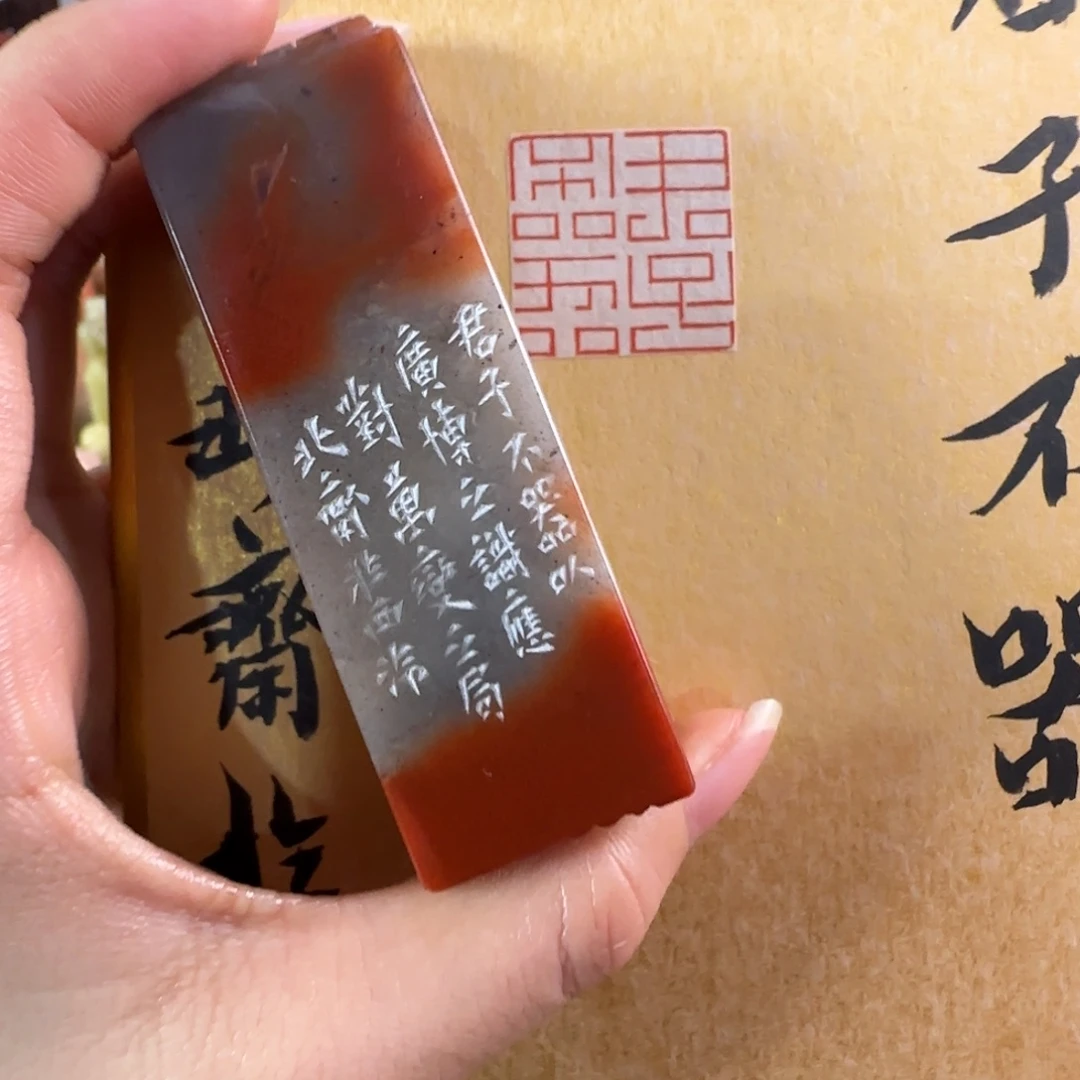 君子不器
君子不器以
廣博之識應
對萬變之局
北齋非西
齋